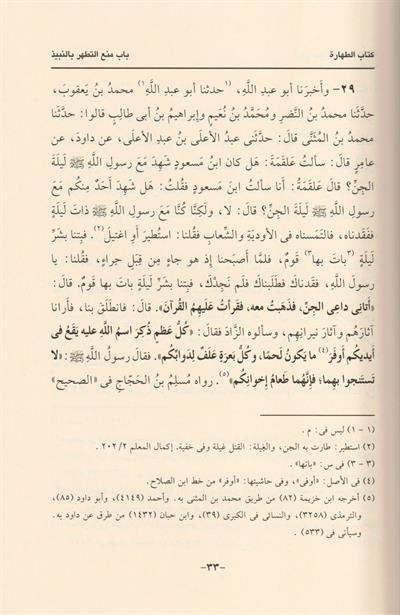 كتاب الطهارة باب منع التطهر بالنبيذ
٢٩- وأخبرَنا أبو عبدِ اللَّهِ، (١حدثنا أبو عبدِ اللَّهِ١) محمدُ بنُ يَعقوبَ،
حدَّثَنا محمدُ بنُ النَّضرِ ومُحَمَّدُ بنُ نُعَيمٍ وإبراهيمُ بنُ أبى طالِبٍ قالوا: حدَّثَنا
محمدُ بنُ المُثَنَّى قالَ: حدَّثَنى عبدُ الأعلَى بنُ عبدِ الأعلَى، عن داودَ، عن
عامِرٍ قالَ: سألتُ عَلقَمَةَ: هَل كان ابنُ مَسعودٍ شَهِدَ مَعَ رسولِ اللَّهِ ﷺ لَيلَةَ
الجِنِّ؟ قالَ عَلقَمَةُ: أنا سألتُ ابنَ مَسعودٍ فقُلتُ: هل شَهِدَ أحَدٌ مِنكُم مَعَ
رسولِ اللَّهِ ﷺ لَيلَةَ الجِنِّ؟ قالَ: لا، ولَكِنَّا كُنَّا مَعَ رسولِ اللَّهِ ﷺ ذاتَ لَيلَةٍ
ففَقَدناه، فالتَمَسناه فى الأوديَةِ والشِّعابِ فقُلنا: استُطيرَ أوِ اغتيلَ(٢). فبِتنا بشَرِّ
لَيلَةٍ (٣باتَ بها٣) قَومٌ، فلَمَّا أصبَحنا إذ هو جاءٍ مِن قِبَلِ حِراءٍ، فقُلنا: يا
رسولَ اللَّهِ، فقَدناكَ فطَلَبناكَ فلَم نَجِدْكَ، فبِتنا بشَرِّ لَيلَةٍ باتَ بها قَومٌ. قال:
«أتانِى داعِى الجِنِّ، فذَهَبتُ معه، فقَرأتُ عَلَيهِمُ القُرآنَ». قالَ: فانطَلَقَ بنا، فأرانا
آثارَهُم وآثارَ نيرانِهِم، وسألوه الزَّادَ فقالَ: «كُلُّ عَظمٍ ذُكِرَ اسمُ اللَّهِ عليه يَقَعُ فى
أيديكُم أوفَرَ(٤) ما يَكونُ لَحمًا، وكُلُّ بَعرَةٍ عَلَفٌ لِدَوابِّكُم». فقالَ رسولُ اللَّهِ ﷺ: «لا
تَستَنجوا بهِما؛ فإنَّهُما طَعامُ إخوانِكُم»(٥). رواه مسلِمُ بنُ الحَجّاجِ فى «الصحيح»
(١ - ١) ليس فى: م .
(٢) استطير: طارت به الجن، والغِيلة: القتل غيلة وفى خفية. إكمال المعلم ٢٠٢/٢ .
(٣ - ٣) فى س: «باتها».
(٤) فى الأصل: «أوفى»، وفى حاشيتها: «أوفر» من خط ابن الصلاح.
(٥) أخرجه ابن خزيمة (٨٢) من طريق محمد بن المثنى به. وأحمد (٤١٤٩)، وأبو داود (٨٥)،
والترمذى (٣٢٥٨)، والنسائى فى الكبرى (٣٩)، وابن حبان (١٤٣٢) من طرق عن داود به.
وسيأتى فى (٥٣٣) .
-٣٣-